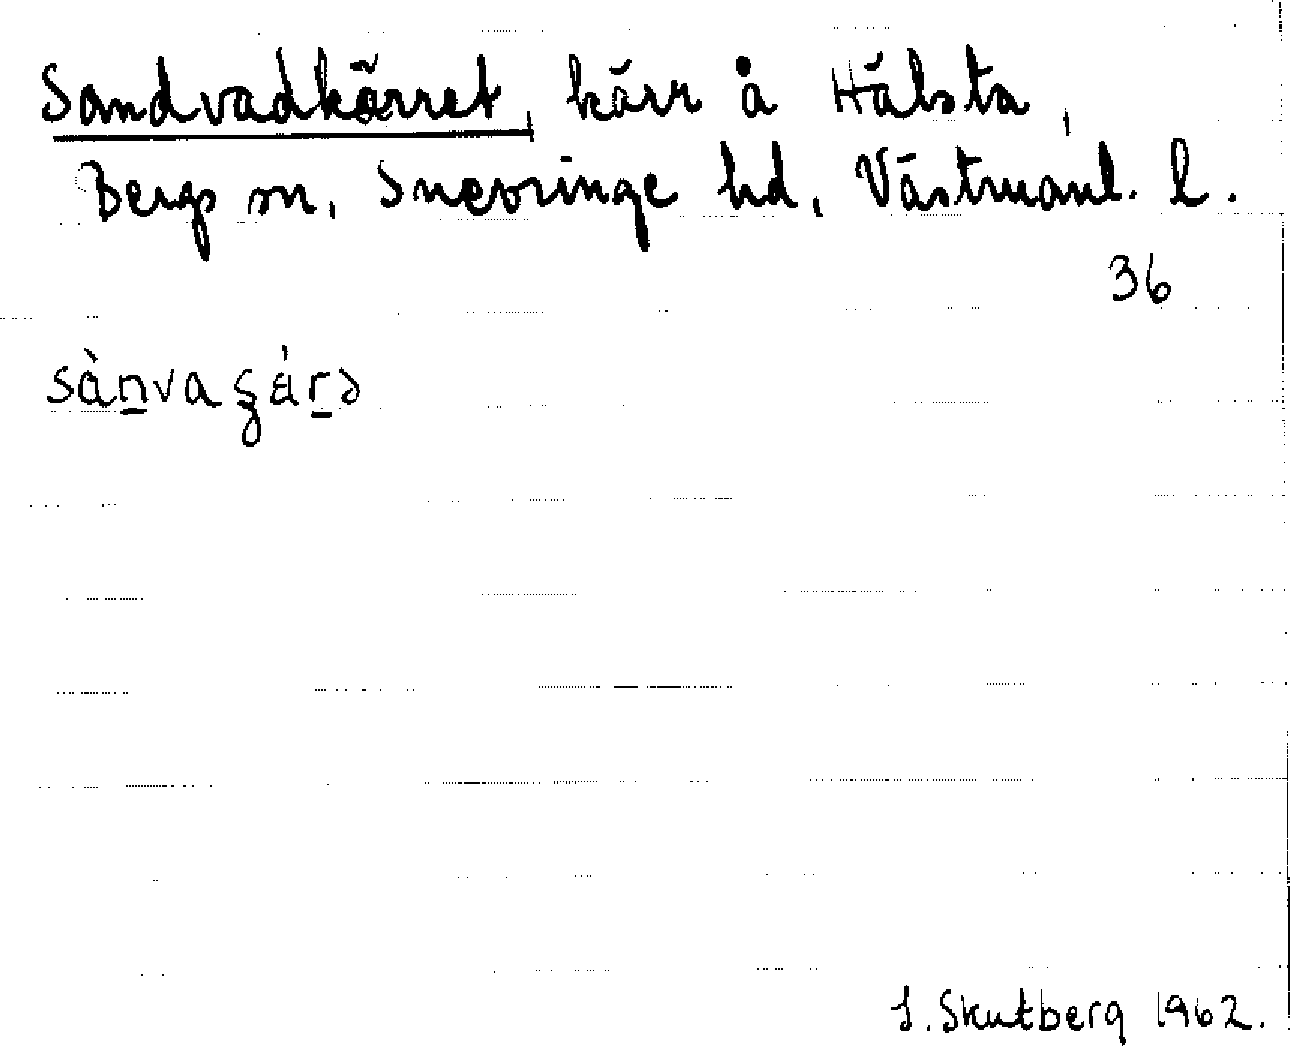 Sandvadkärret, kärr å Hälsta,
Bergs sn, Snevringe hd, Västmanl. l.
36
sànvaʂárə
S. Skutberg 1962.